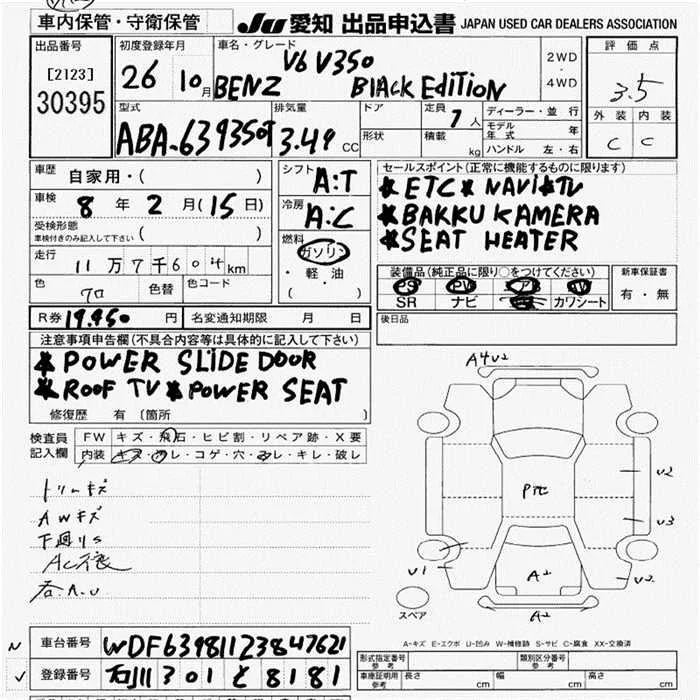 車内保管・守衛保管
JU 愛知 出品申込書 JAPAN USED CAR DEALERS ASSOCIATION
出品番号
[2123]
30395
初度登録年月
26 10月
車名・グレード
V6 V350
BENZ BlACK EdiTiON
2WD
・
4WD
評価点
3.5
外装 内装
C C
型式
ABA-639350T
排気量
3.49 CC
ドア
形状
定員 7人
積載 kg
ディーラー・並行
モデル年式 年
ハンドル 左・右
車歴 自家用・( )
車検 8年 2月(15日)
受検形態
車検付きのみ記入して下さい ( )
走行 11万7千60 km
色 クロ 色替 色コード
シフト A:T
冷房 A:C
燃料
ガソリン
・軽油
・( )
セールスポイント(正常に機能するものに限ります)
ETC NAVi TV
BAKKU KAMERA
SEAT HEATER
装備品(純正品に限り○をつけてください)
PS PW TV
SR ナビ カワシート
新車保証書
有・無
R券 19.450円 名変通知期限 月 日
後日品
注意事項申告欄(不具合内容等は具体的に記入して下さい)
POWER SLiDE DOOR
ROOF TV POWER SEAT
修復歴 有 〔箇所 〕
検査員記入欄
FW キズ・飛石・ヒビ割・リペア跡・X要
内装 キズ・コゲ・穴・キレ・破レ
トリムキズ
AWキズ
下廻りS
A4 U2
U2
U3
U1
U2
A2
A2
スペア
A-キズ E-エクボ U-凹み W-補修跡 S-サビ C-腐食 XX-交換済
車台番号 WDF63981123847621
登録番号 石川 301 と 8181
形式指定番号 参考
類別区分番号 参考
車庫証明用参考 長さ cm 幅 cm 高さ cm